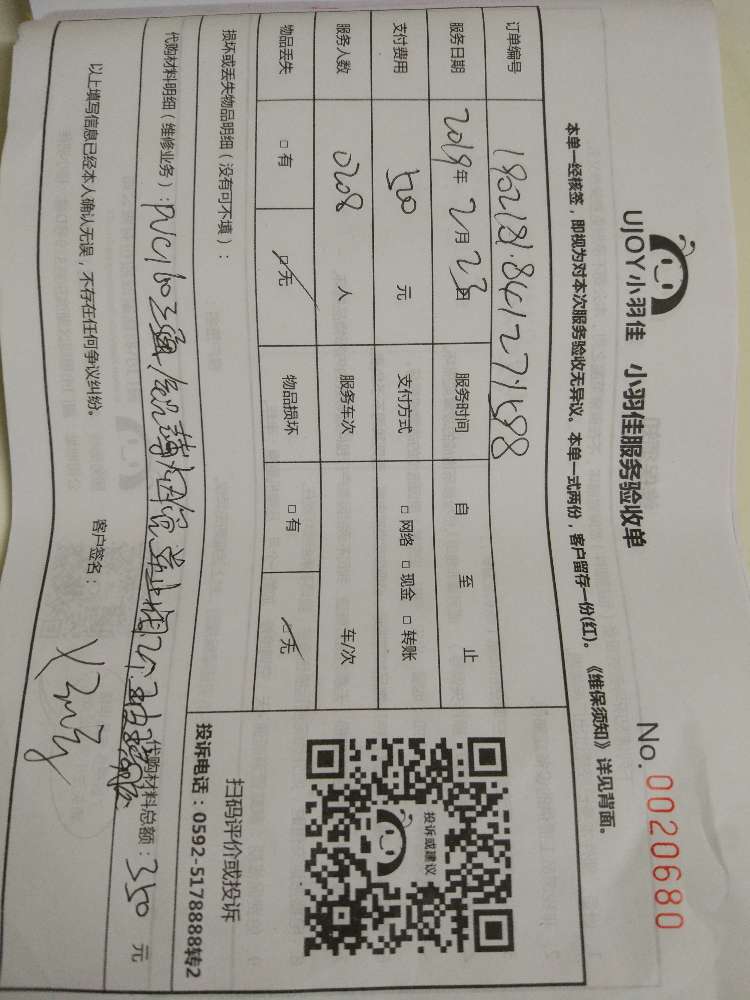 UJOY小羽佳 小羽佳服务验收单
No. 0020680
本单一经核签，即视为对本次服务验收无异议。本单一式两份，客户留存一份(红)。《维保须知》详见背面。
订单编号
服务日期 2019年 2月 23日 服务时间 自 至 止
支付费用 50 元 支付方式 □ 网络 □ 现金 □ 转账
服务人数 人 服务车次 车/次
物品丢失 □ 有 □ 无 物品损坏 □ 有 □ 无
投诉或建议
扫码评价或投诉
投诉电话：0592-5178888转2
损坏或丢失物品明细（没有可不填）：
代购材料明细（维修业务）: PVC160
代购材料总额: 350 元
以上填写信息已经本人确认无误，不存在任何争议纠纷。 客户签名：